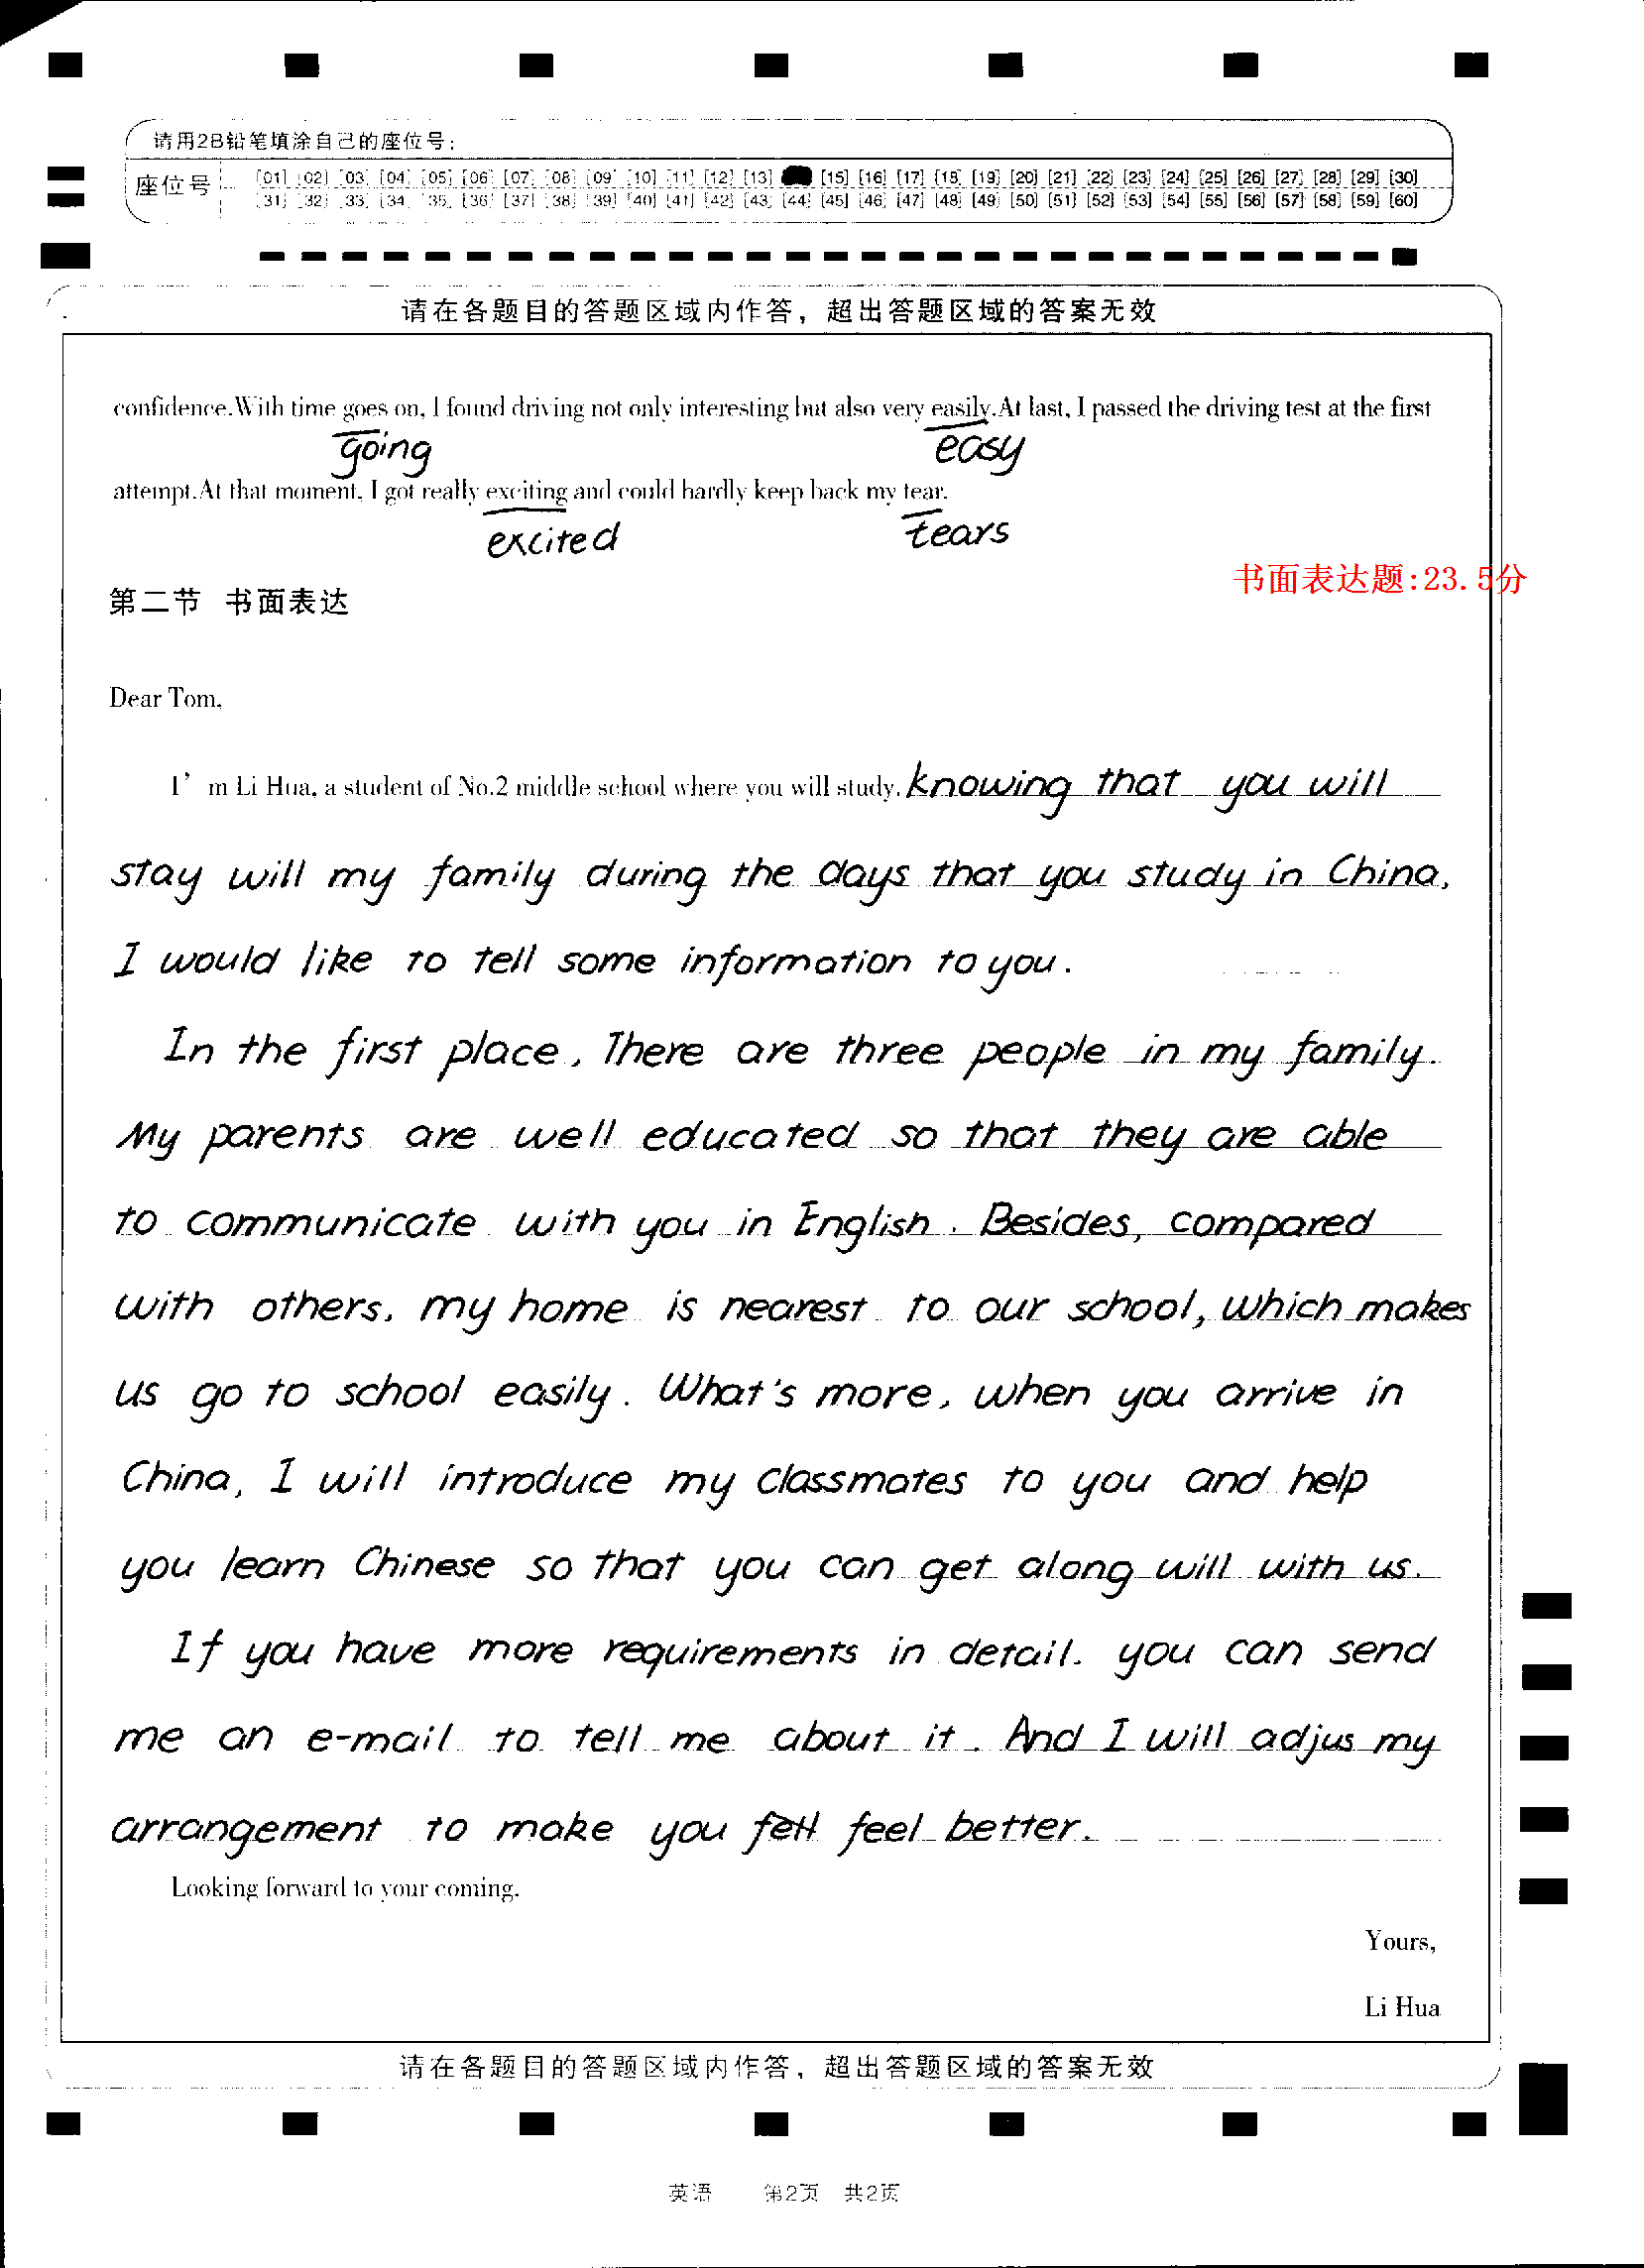 请用2B铅笔填涂自己的座位号:
座位号 [01] [02] [03] [04] [05] [06] [07] [08] [09] [10] [11] [12] [13] [15] [16] [17] [18] [19] [20] [21] [22] [23] [24] [25] [26] [27] [28] [29] [30]
[31] [32] [33] [34] [35] [36] [37] [38] [39] [40] [41] [42] [43] [44] [45] [46] [47] [48] [49] [50] [51] [52] [53] [54] [55] [56] [57] [58] [59] [60]
请在各题目的答题区域内作答，超出答题区域的答案无效
confidence.With time goes on, I found driving not only interesting but also very easily.At last, I passed the driving test at the first
going easy
attempt.At that moment, I got really exciting and could hardly keep back my tear.
excited tears
书面表达题:23.5分
第二节 书面表达
Dear Tom,
I'm Li Hua, a student of No.2 middle school where you will study. knowing that you will
stay will my family during the days that you study in China,
I would like to tell some information to you.
In the first place, There are three people in my family.
My parents are well educated so that they are able
to communicate with you in English. Besides, compared
with others, my home is nearest to our school, which makes
us go to school easily. What's more, when you arrive in
China, I will introduce my classmates to you and help
you learn Chinese so that you can get along will with us.
If you have more requirements in detail. you can send
me an e-mail to tell me about it. And I will adjus my
arrangement to make you feel better.
Looking forward to your coming.
Yours,
Li Hua
请在各题目的答题区域内作答，超出答题区域的答案无效
英语 第2页 共2页